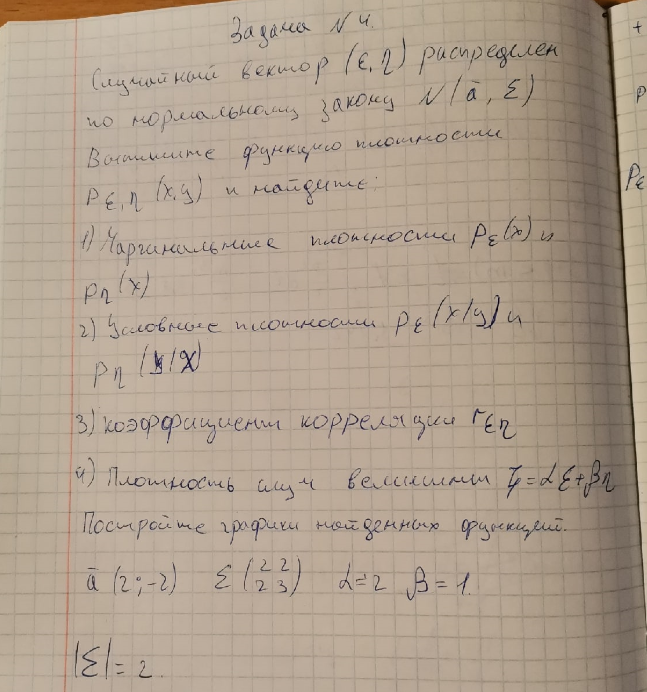 Задача N 4.
Случайный вектор (ξ, η) распределен
по нормальному закону N(ā, Σ)
Выпишите функцию плотности
P ξ, η (x,y) и найдите:
1) Маргинальные плотности Pξ(x) и
Pη(x)
2) Условные плотности Pξ(x/y) и
Pη(y/x)
3) Коэффициент корреляции rξη
4) Плотность случ величины ζ = αξ + βη
Постройте графики найденных функций.
ā (2; -2) Σ (2 2 2 3) α = 2 β = 1.
|Σ| = 2.
+
P
Pξ